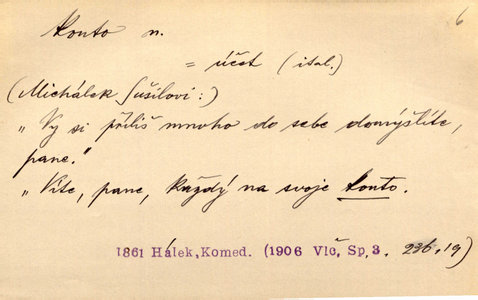 6
konto n.
= účet (ital.)
(Michálek Sušilovi:)
„Vy si příliš mnoho do sebe domýšlíte,
pane."
„Víte, pane, každý na svoje konto.
1861 Hálek, Komed. (1906 Vlč, Sp, 3. 236, 19)